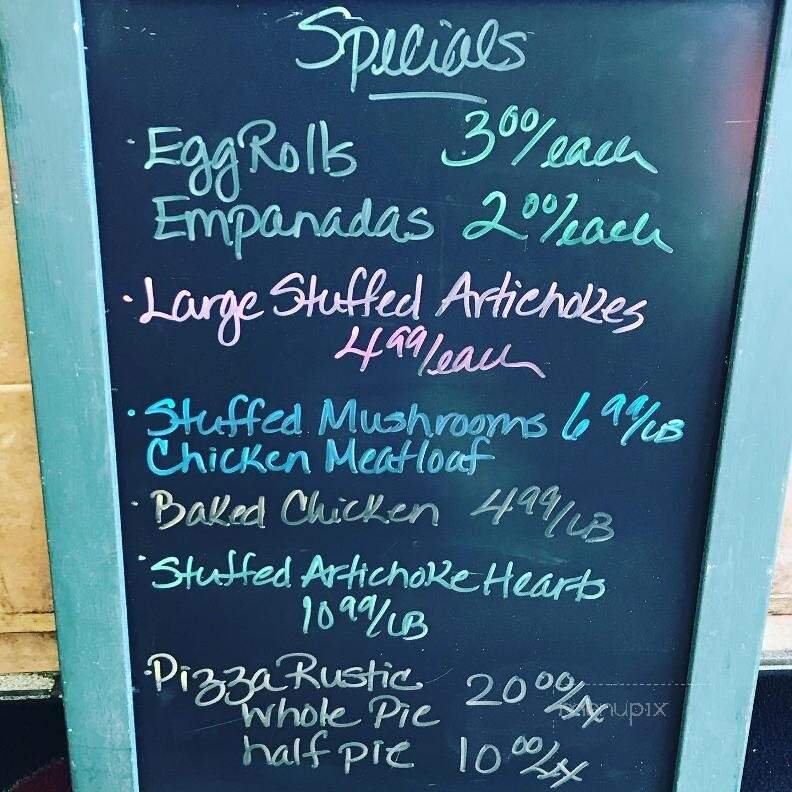 Specials
· Egg Rolls 3.00/each
Empanadas 2.00/each
· Large Stuffed Artichokes
4.99/each
· Stuffed Mushrooms 6.99/LB
Chicken Meatloaf
· Baked Chicken 4.99/LB
· Stuffed Artichoke Hearts
10.99/LB
· Pizza Rustic
Whole Pie 20.00
half pie 10.00
menupix